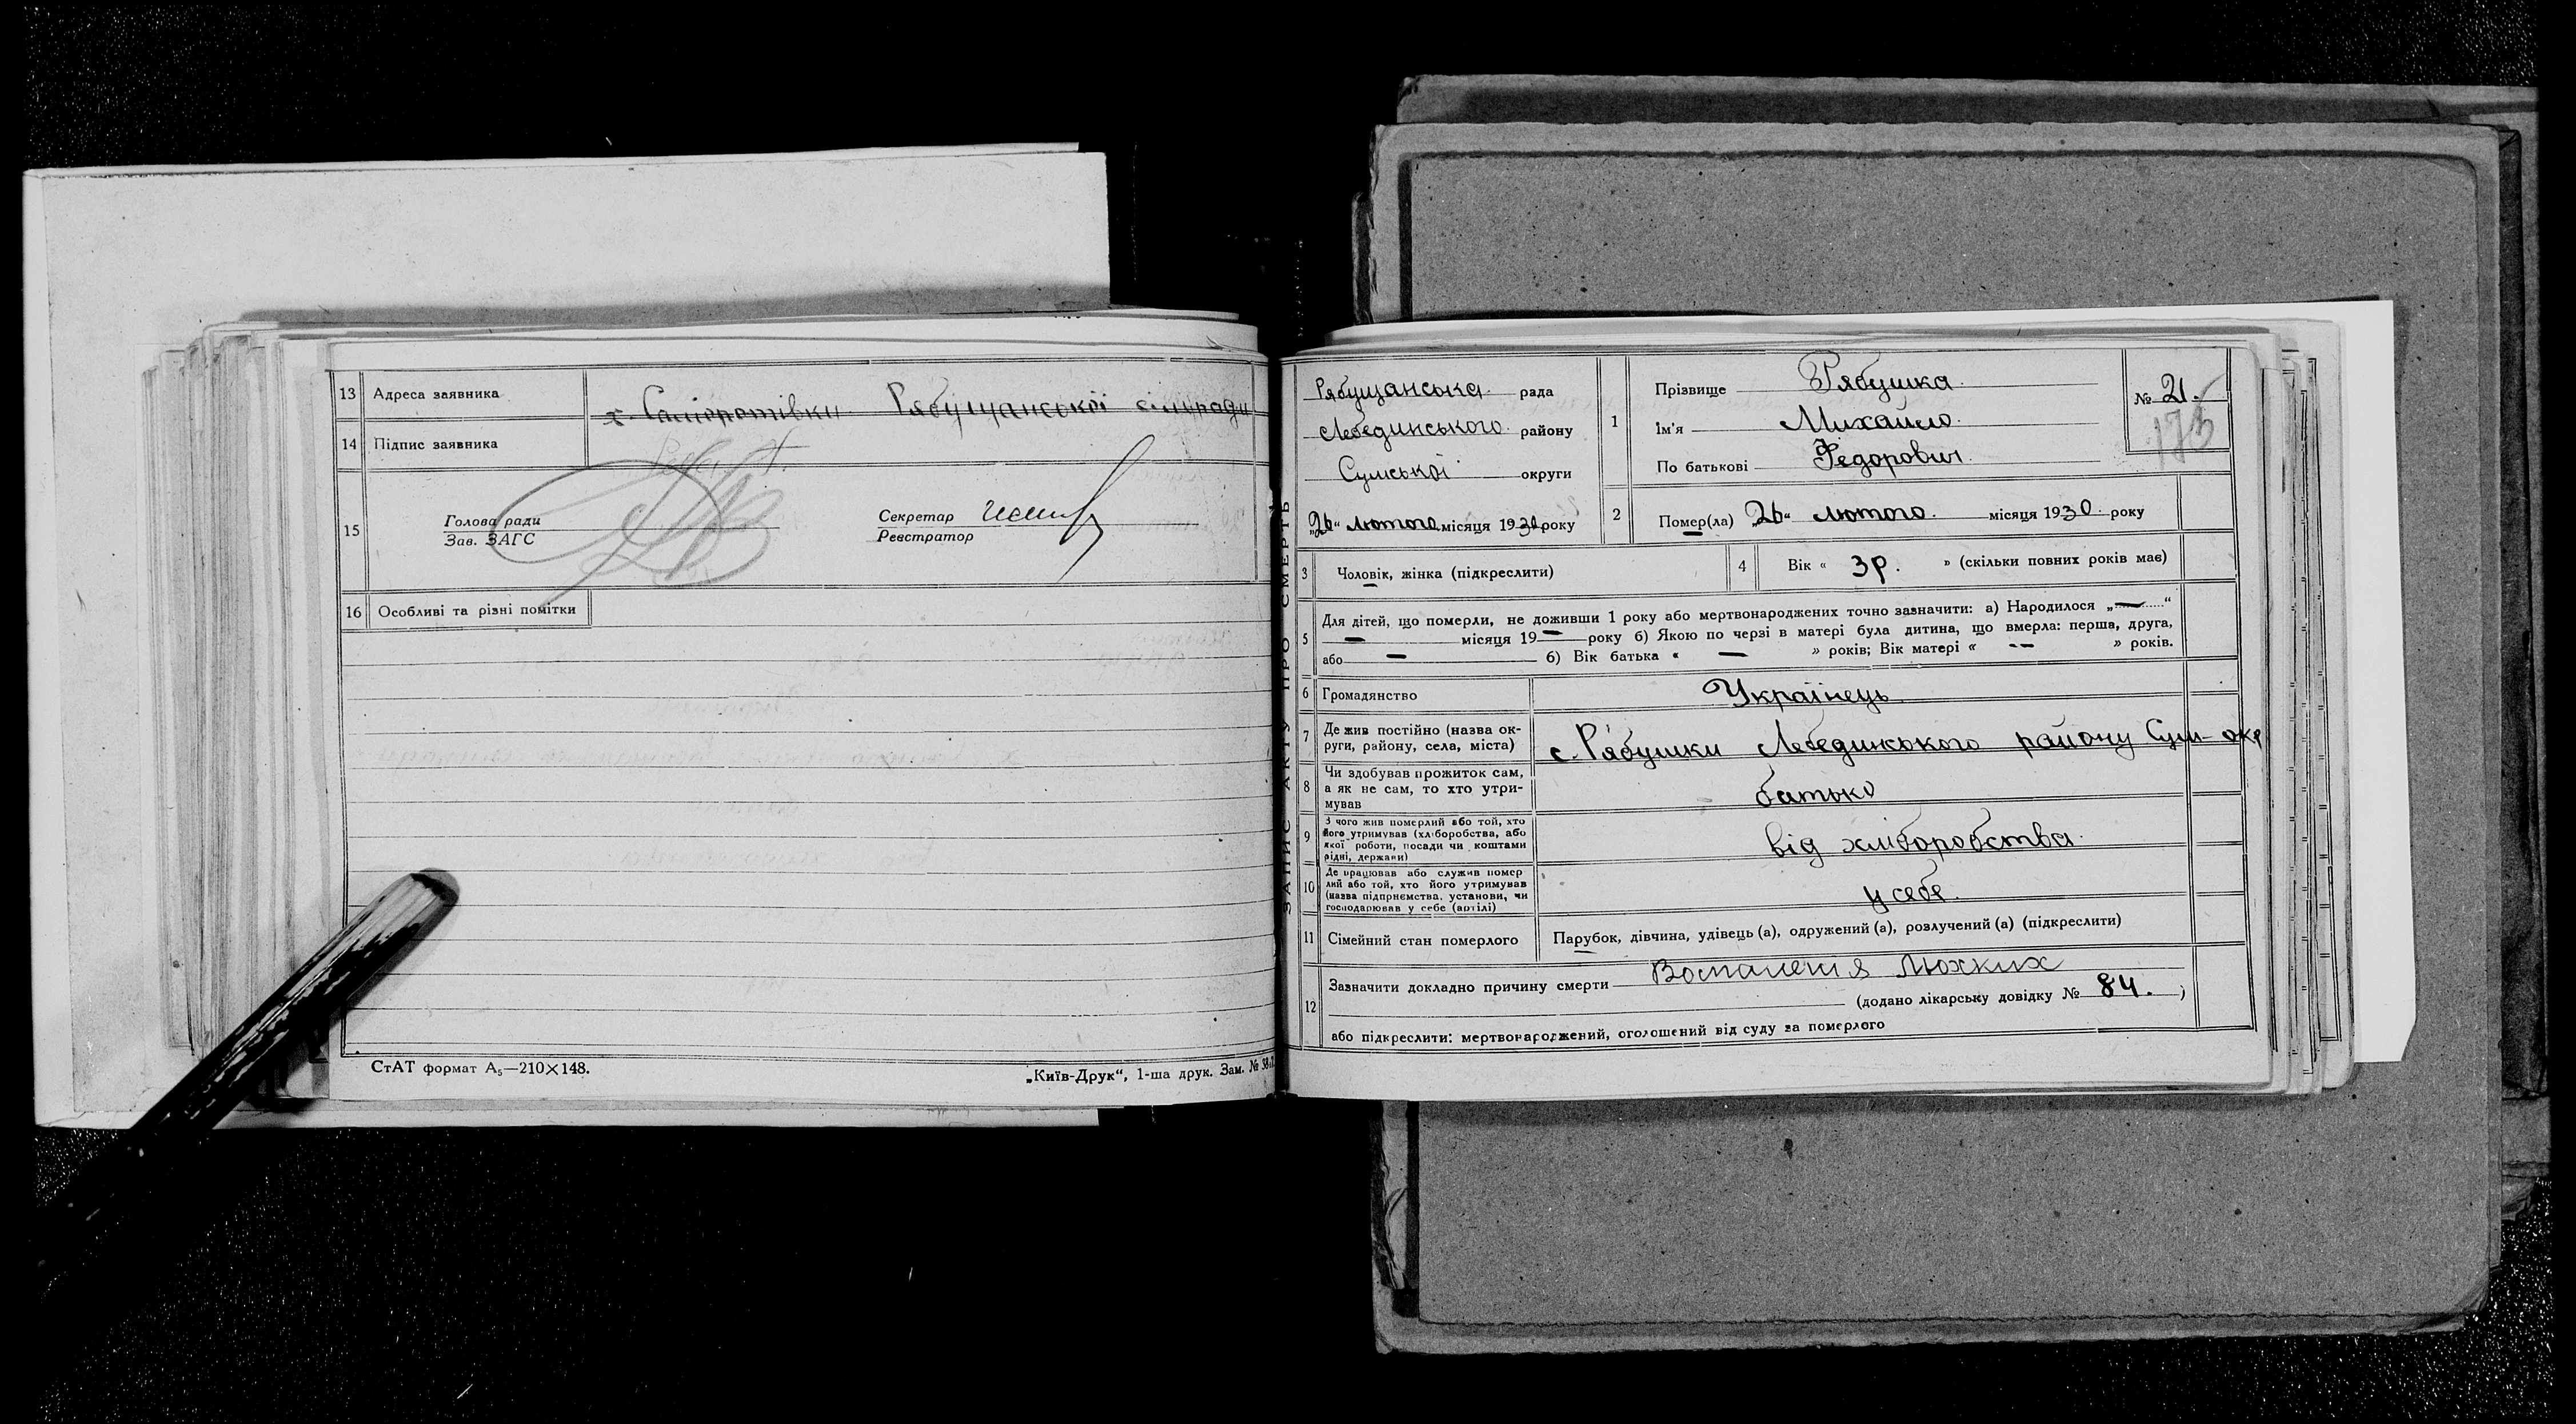 13 Адреса заявника
Рябущанської сільради
14 Підпис заявника
15
Голова ради
Зав. ЗАГС
Секретар
Реєстратор
16 Особливі та різні помітки
СтАТ формат А₅—210×148.
„Київ-Друк“, 1-ша друк. Зам. №
ЗАПИС АКТУ ПРО СМЕРТЬ
Рябущанська рада
Лебединського району
Сумської округи
„26“ лютого місяця 1930 року
1
Прізвище Рябушка
Ім'я Михайло
По батькові Федорович
№ 21.
173
2 Помер(ла) „26“ лютого місяця 1930 року
3 Чоловік, жінка (підкреслити)
4 Вік « 3 р. » (скільки повних років має)
5 Для дітей, що померли, не доживши 1 року або мертвонароджених точно зазначити: а) Народилося „—“
— місяця 19— року б) Якою по черзі в матері була дитина, що вмерла: перша, друга,
або — б) Вік батька « — » років; Вік матері « — » років.
6 Громадянство Українець
7 Де жив постійно (назва ок-
руги, району, села, міста)
с. Рябушки Лебединського району Сум- окр
8 Чи здобував прожиток сам,
а як не сам, то хто утри-
мував
батько
9 З чого жив померлий або той, хто
його утримував (хліборобства, або
якої роботи, посади чи коштами
рідні, держави)
від хліборобства
10 Де працював або служив помер
лий або той, хто його утримував
(назва підприємства, установи, чи
господарював у себе (артілі)
у себе.
11 Сімейний стан померлого Парубок, дівчина, удівець (а), одружений (а), розлучений (а) (підкреслити)
12 Зазначити докладно причину смерти Воспаления Льохких
(додано лікарську довідку № 84. )
або підкреслити: мертвонароджений, оголошений від суду за померлого